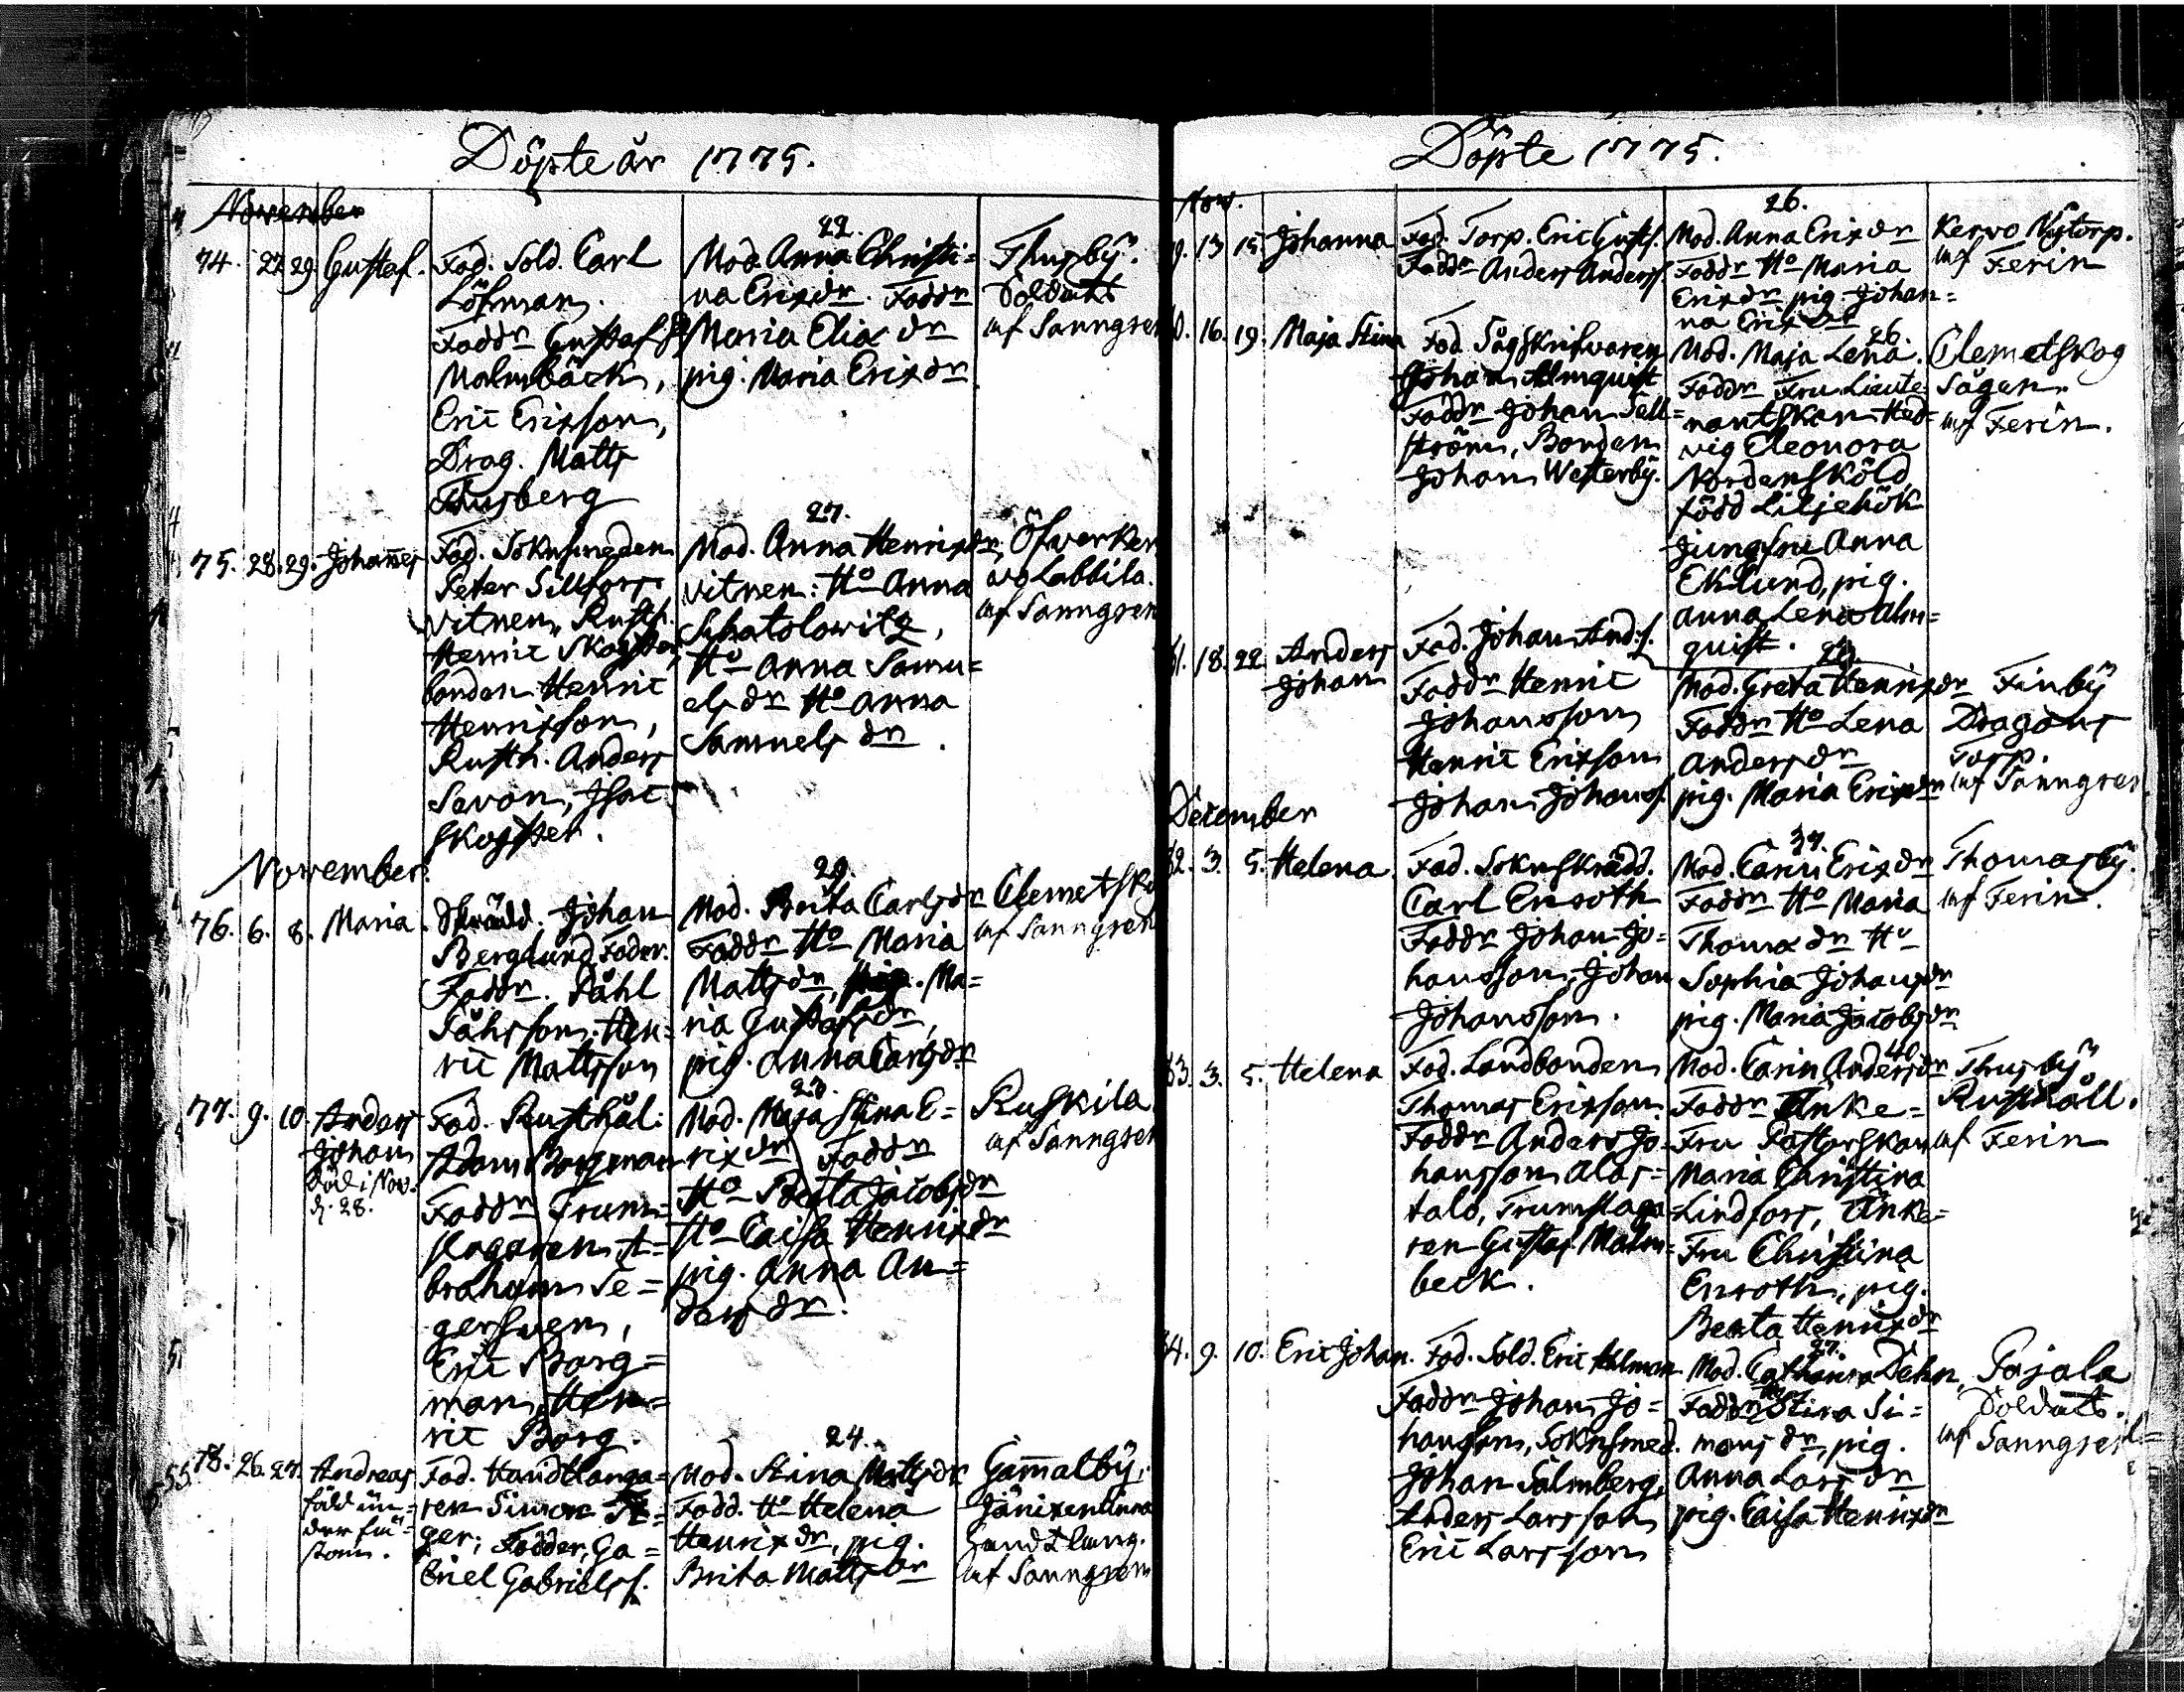 Döpte år 1775.
November
74. 27. 29. Gustaf. Fad. Sold. Carl
Löfman.
Faddr Gustaf
Malmbäck,
Eric Erixson,
Drag. Matts
Thusberg
22.
Mod. Anna Christi=
na Erixdr. Faddr
Maria Eliæ dr
pig. Maria Erixdr
Thusbÿ.
Soldats
inf Sanngren
75. 28. 29. Johannes Fad. Soknsmeden
Peter Sillfors
vitnen, Rusth.
Henric Skogster,
bonden Henric
Henrixson,
Rusth. Anders
Savon, Isac
Skogster.
27.
Mod. Anna Henrixdr
vitnen: Ho Anna
Schatolowitz,
Ho Anna Samu=
elsdr Ho Anna
Samuels dr.
Öfverker
vo Labbila.
inf Sanngren
November.
76. 6. 8. Maria. Skrädd. Johan
Berglund, Fader.
Faddr. Påhl
Påhlsson, Hen=
ric Mattsson
29.
Mod. Brita Carlsdr
Faddr Ho Maria
Mattsdr, pig. Ma=
ria Gustafsdr,
pig. Anna Carlsdr
Clemetskog
inf Sanngren
77. 9. 10. Anders
Johan
Död i Nov.
d. 28.
Fad. Rusthål:
Adam Borgman
Faddr Trum=
slagaren A=
braham Se=
gersven,
Eric Borg=
man, Hen=
ric Borg.
23.
Mod. Maja Stina E=
rixdr Faddr
Ho Beata Jacobsdr
Ho Caisa Henrixdr
pig. Anna An=
dersdr.
Ruskila
inf Sanngren
78. 26. 27. Andreas
Fad. Handtlanga=
ren Simon
Fadder, Ga=
briel Gabrielss.
24.
Mod. Stina Mattsdr
Fadd. Ho Helena
Henrixdr, pig.
Brita Mattsdr
Gamalbÿ,
Handtlang.
inf Sanngren
Döpte 1775.
Nov.
9. 13 15. Johanna Fad. Torp. Eric Gustfs.
Faddr Anders Anderss.
26.
Mod. Anna Erixdr
Faddr Ho Maria
Erixdr pig. Johan=
na Erixdr
Kervo Nÿtorp.
inf Ferin
0. 16. 19. Maja Stina Fad. Sågskrifvaren
Johan Almquist
Faddr Johan Sell=
ström, Bonden
Johan Westerbÿ.
26.
Mod. Maja Lena.
Faddr Fru Lieute=
nantskan Hed=
vig Eleonora
Nordensköld,
född Liljehök
Jungfru Anna
Eklund, pig.
Anna Lena Alm=
quist.
Clemetskog
Sågen.
inf Ferin.
81. 18. 22. Anders
Johan
Fad. Johan Ands.
Faddr Henric
Johansson
Henric Erixson
Johan Johanss.
23.
Mod. Greta Henrixdr
Faddr Ho Lena
Andersdr
pig. Maria Erixdr
Finbÿ
Dragons
Torp.
inf Sanngren
December
82. 3. 5. Helena Fad. Soknskrädd.
Carl Enroth
Faddr Johan Jo=
hansson, Johan
Johansson.
37.
Mod. Carin Erixdr
Faddr Ho Maria
Thomædr Ho
Sophia Johansdr
pig. Maria Jacobsdr
Thomasbÿ.
inf Ferin.
83. 3. 5. Helena Fad. Landbonden
Thomas Erixson.
Faddr Anders Jo=
hansson Alas=
talo, Trumslaga=
ren Gustaf Malm=
beck.
40.
Mod. Carin Andersdr
Faddr Enke=
Fru Pastorskan
Maria Christina
Lindfors, Enke=
Fru Christina
Enroth, pig.
Beata Henrixdr
Thusbÿ
Rusthåll.
inf Ferin
84. 9. 10. Eric Johan. Fad. Sold. Eric Ahlman
Faddr Johan Jo=
hansson, Soknsmed.
Johan Salmberg,
Anders Larsson
Eric Larsson
27.
Mod. Catharina Dehn,
Faddr Ho Stina Si=
monsdr, pig.
Anna Larsdr
pig. Caisa Henrixdr
Pajala
Soldats.
inf Sanngren